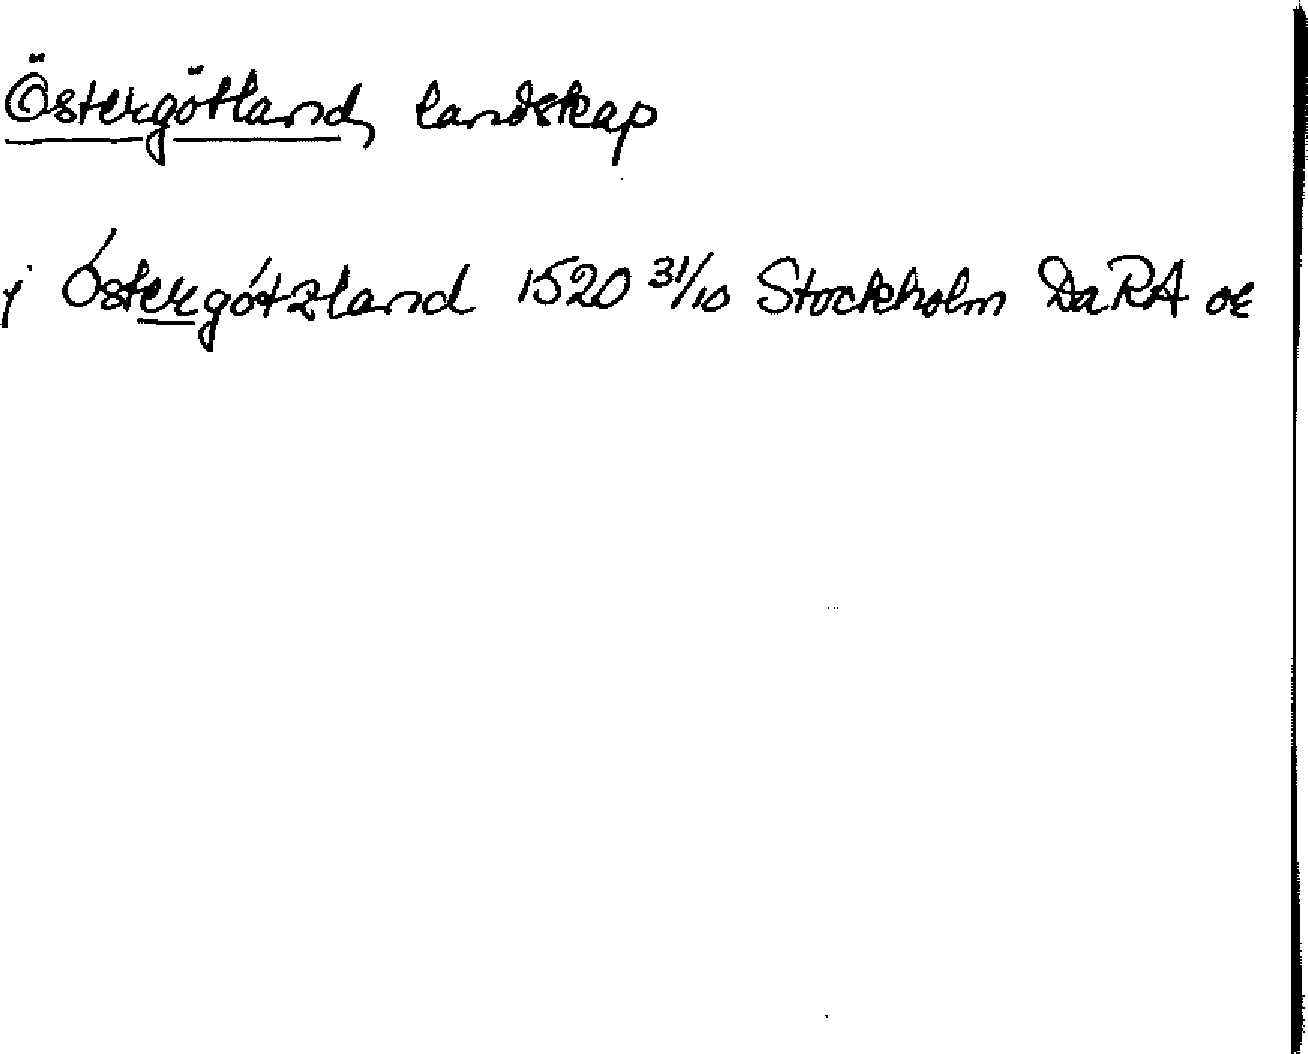 Östergötland, landskap
j Óstergótzland 1520 31/10 Stockholm DaRA oc